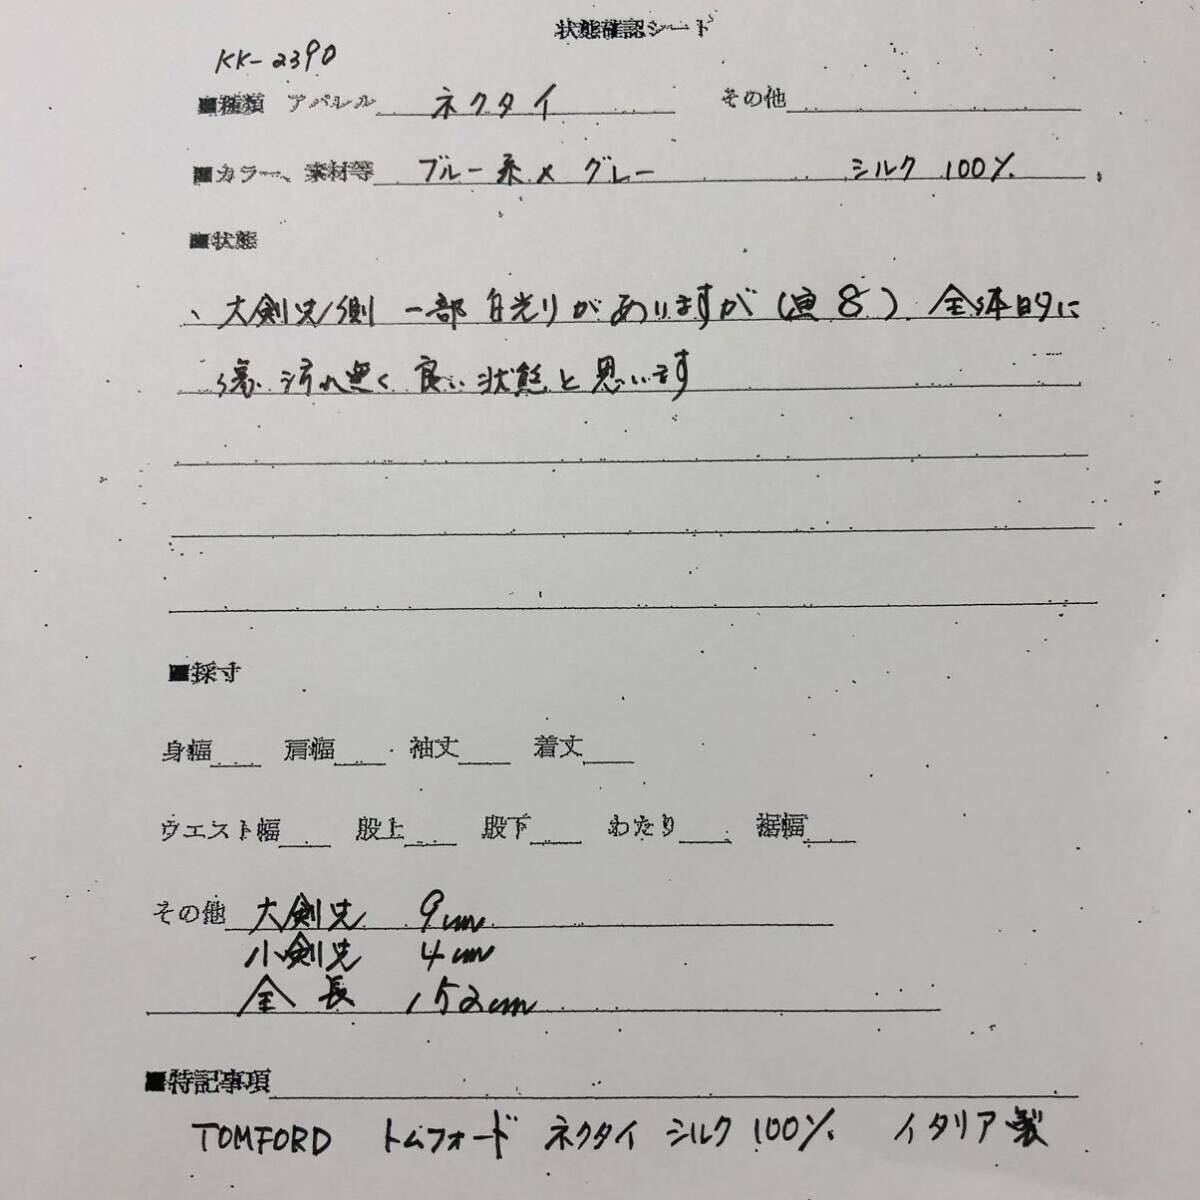 状態確認シート
KK-2390
■種類 アパレル ネクタイ その他
■カラー、素材等 ブルー系×グレー シルク 100%
■状態
、大剣先側 一部 白光りがありますが(画 8) 全体的に
傷、汚れ無く 良い状態と思います
■採寸
身幅 肩幅 袖丈 着丈
ウエスト幅 股上 股下 わたり 裾幅
その他 大剣先 9cm
小剣先 4cm
全長 152cm
■特記事項
TOMFORD トムフォード ネクタイ シルク 100% イタリア製